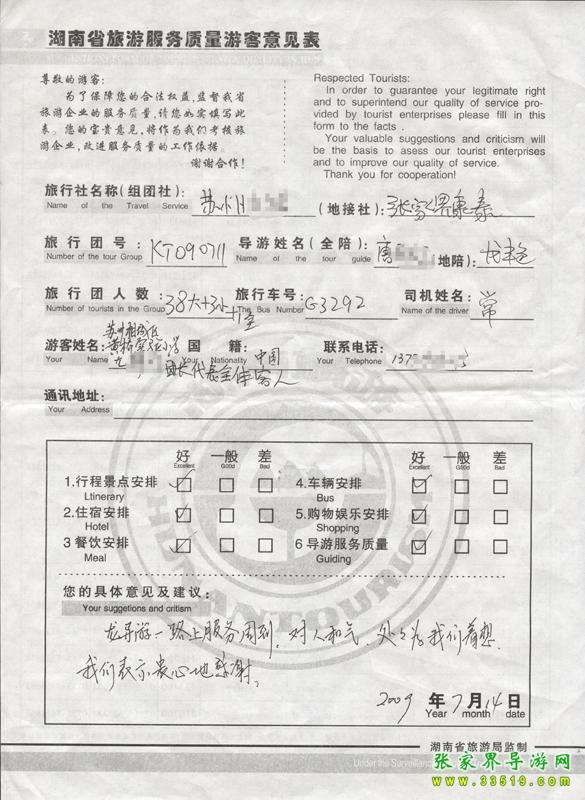 湖南省旅游服务质量游客意见表
尊敬的游客:
为了保障您的合法权益,监督我省
旅游企业的服务质量,请您如实填写此
表。您的宝贵意见,将作为我们考核旅
游企业,改进服务质量的工作依据。
谢谢合作!
Respected Tourists:
In order to guarantee your legitimate right
and to superintend our quality of service pro-
vided by tourist enterprises please fill in this
form to the facts .
Your valuable suggestions and criticism will
be the basis to asess our tourist enterprises
and to improve our quality of service.
Thank you for cooperation!
旅行社名称(组团社): 苏州 (地接社): 张家界康泰
Name of the Travel Service
旅行团号: KT090711 导游姓名(全陪): 唐 地陪):
Number of the tour Group Name of the tour guide
旅行团人数: 38大+3小+1全 旅行车号: G3292 司机姓名: 常
Number of tourists in the Group The Bus Number Name of the driver
苏州相城区
游客姓名: 黄桥实验小学 国籍: 中国 联系电话: 137
Your Name Your Nationality Your Telephone
团长代表全体客人
通讯地址:
Your Address
好 一般 差 好 一般 差
Excellent G0od Bad Excellent G0od Bad
1.行程景点安排 4.车辆安排
Ltinerary Bus
2.住宿安排 5.购物娱乐安排
Hotel Shopping
3 餐饮安排 6 导游服务质量
Meal Guiding
您的具体意见及建议:
Your suggetions and critism
龙导游一路上服务周到,对人和气,处处为我们着想.
我们表示衷心地感谢。
2009 年 7 月 14 日
Year month date
湖南省旅游局监制
Under the Surveillance
HUNAN TOURISM
张家界导游网
www.33519.com